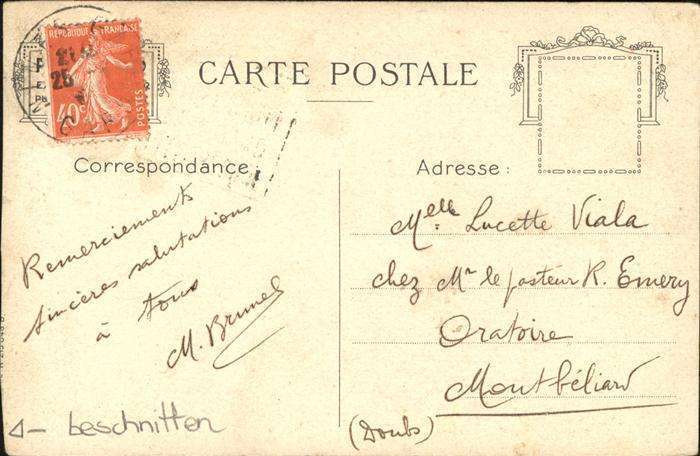 REPUBLIQUE FRANÇAISE
25
40c
POSTES
CARTE POSTALE
Correspondance
Adresse :
Remerciements
sincères salutations
à tous
M. Brunel
Melle Lucette Viala
chez Mr le pasteur R. Emery
Oratoire
Montbéliard
(Doubs)
beschnitten